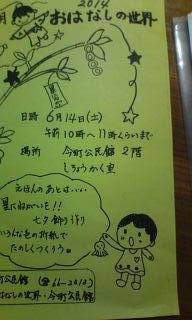 2014
おはなしの世界
日時 6月14日(土)
午前10時〜11時くらいまで
場所 今町公民館 2階
しちょうかく室
えほんのあとは・・・・
星にねがいを!!
七夕飾り作り
いろんな色の折紙で
たのしくつくろう
町公民館 (☎66-2010)
なしの世界・今町公民館